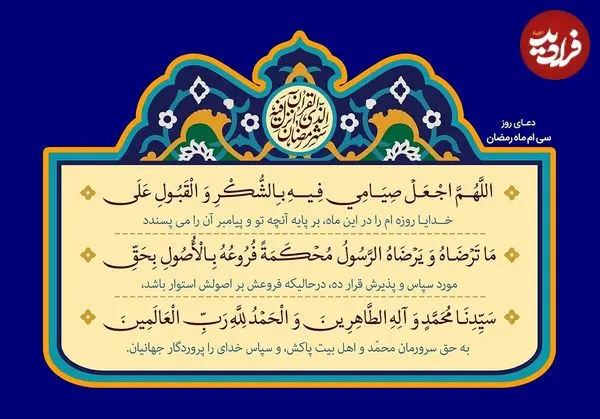 فرادید
دعای روز
سی ام ماه رمضان
شهر رمضان الذی انزل فیه القرآن
اللَّهُمَّ اجْعَلْ صِيَامِي فِيهِ بِالشُّكْرِ وَ الْقَبُولِ عَلَى
خدایا روزه ام را در این ماه، بر پایه آنچه تو و پیامبر آن را می پسندد
مَا تَرْضَاهُ وَ يَرْضَاهُ الرَّسُولُ مُحْكَمَةً فُرُوعُهُ بِالْأُصُولِ بِحَقِّ
مورد سپاس و پذیرش قرار ده، درحالیکه فروعش بر اصولش استوار باشد،
سَيِّدِنَا مُحَمَّدٍ وَ آلِهِ الطَّاهِرِينَ وَ الْحَمْدُ لِلَّهِ رَبِّ الْعَالَمِينَ
به حق سرورمان محمّد و اهل بیت پاکش، و سپاس خدای را پروردگار جهانیان.